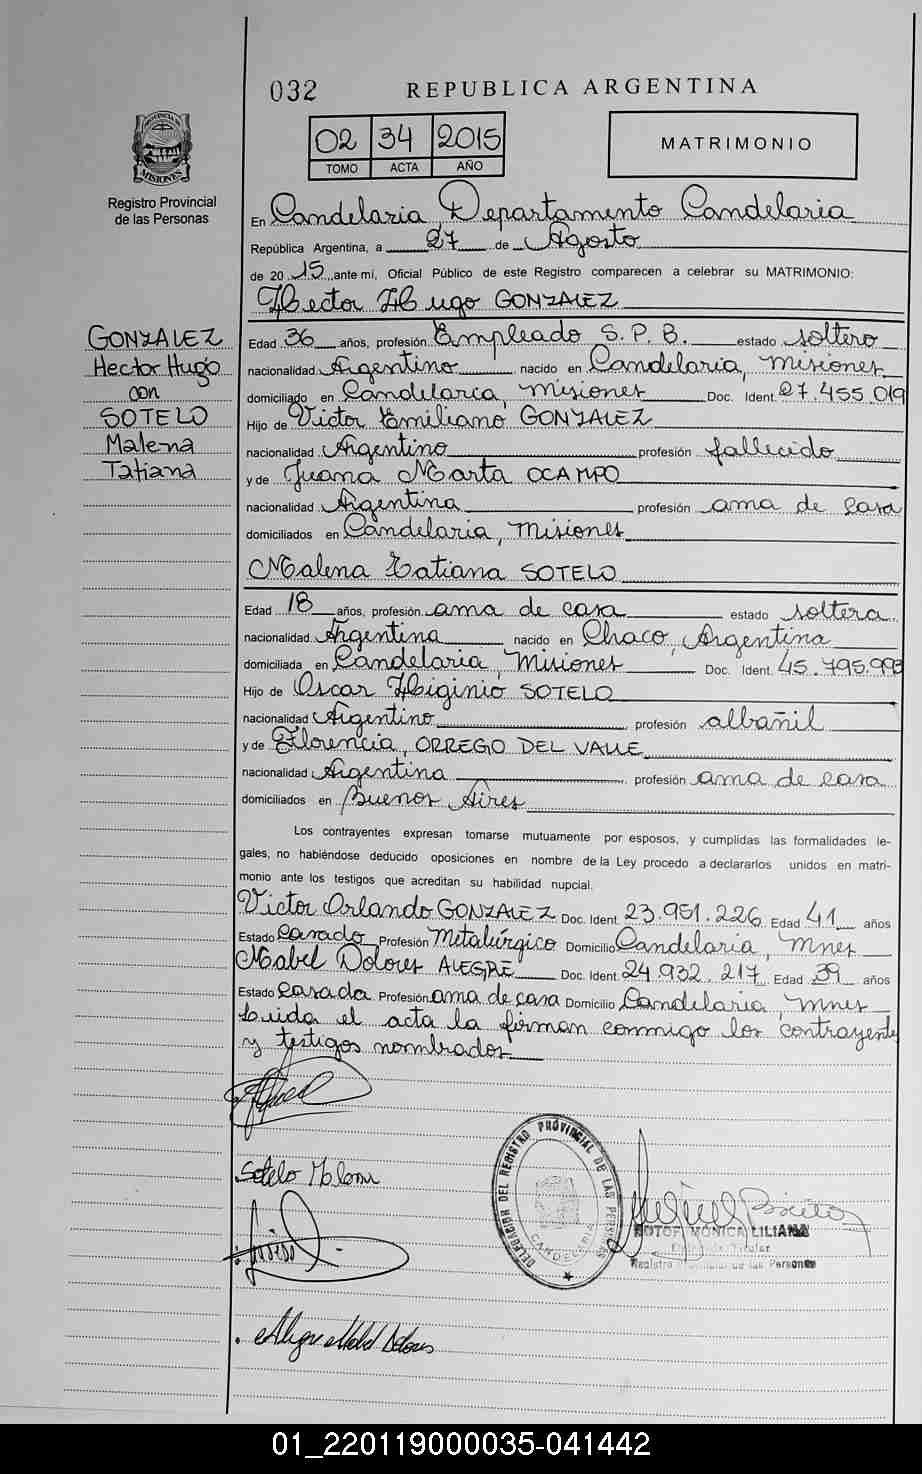 032
REPUBLICA ARGENTINA
02 34 2015
TOMO ACTA AÑO
MATRIMONIO
PROVINCIA DE
MISIONES
Registro Provincial
de las Personas
En Candelaria, Departamento Candelaria
República Argentina, a 27 de Agosto
de 20 15 ante mí, Oficial Público de este Registro comparecen a celebrar su MATRIMONIO:
Hector Hugo GONZALEZ
GONZALEZ
Hector Hugo
con
SOTELO
Malena
Tatiana
Edad 36 años, profesión Empleado S.P.B. estado soltero
nacionalidad Argentino nacido en Candelaria, Misiones
domiciliado en Candelaria, Misiones Doc. Ident. 27.455.019
Hijo de Victor Emiliano GONZALEZ
nacionalidad Argentino profesión fallecido
y de Juana Marta OCAMPO
nacionalidad Argentina profesión ama de casa
domiciliados en Candelaria, Misiones
Malena Tatiana SOTELO
Edad 18 años, profesión ama de casa estado soltera
nacionalidad Argentina nacido en Chaco, Argentina
domiciliada en Candelaria, Misiones Doc. Ident. 45.795.993
Hijo de Oscar Higinio SOTELO
nacionalidad Argentino profesión albañil
y de Florencia, ORREGO DEL VALLE
nacionalidad Argentina profesión ama de casa
domiciliados en Buenos Aires
Los contrayentes expresan tomarse mutuamente por esposos, y cumplidas las formalidades le-
gales, no habiéndose deducido oposiciones en nombre de la Ley procedo a declararlos unidos en matri-
monio ante los testigos que acreditan su habilidad nupcial.
Victor Orlando GONZALEZ Doc. Ident. 23.951.226 Edad 41 años
Estado casado Profesión Metalúrgico Domicilio Candelaria, Mnes
Mabel Dolores ALEGRE Doc. Ident. 24.932.217 Edad 39 años
Estado casada Profesión ama de casa Domicilio Candelaria, Mnes
Leida el acta la firman conmigo los contrayentes
y testigos nombrados
Sotelo Malena
DELEGACION DEL REGISTRO PROVINCIAL DE LAS PERSONAS
CANDELARIA
MONICA LILIANA
Registro Provincial de las Personas
Alegre Mabel Dolores
01_220119000035-041442